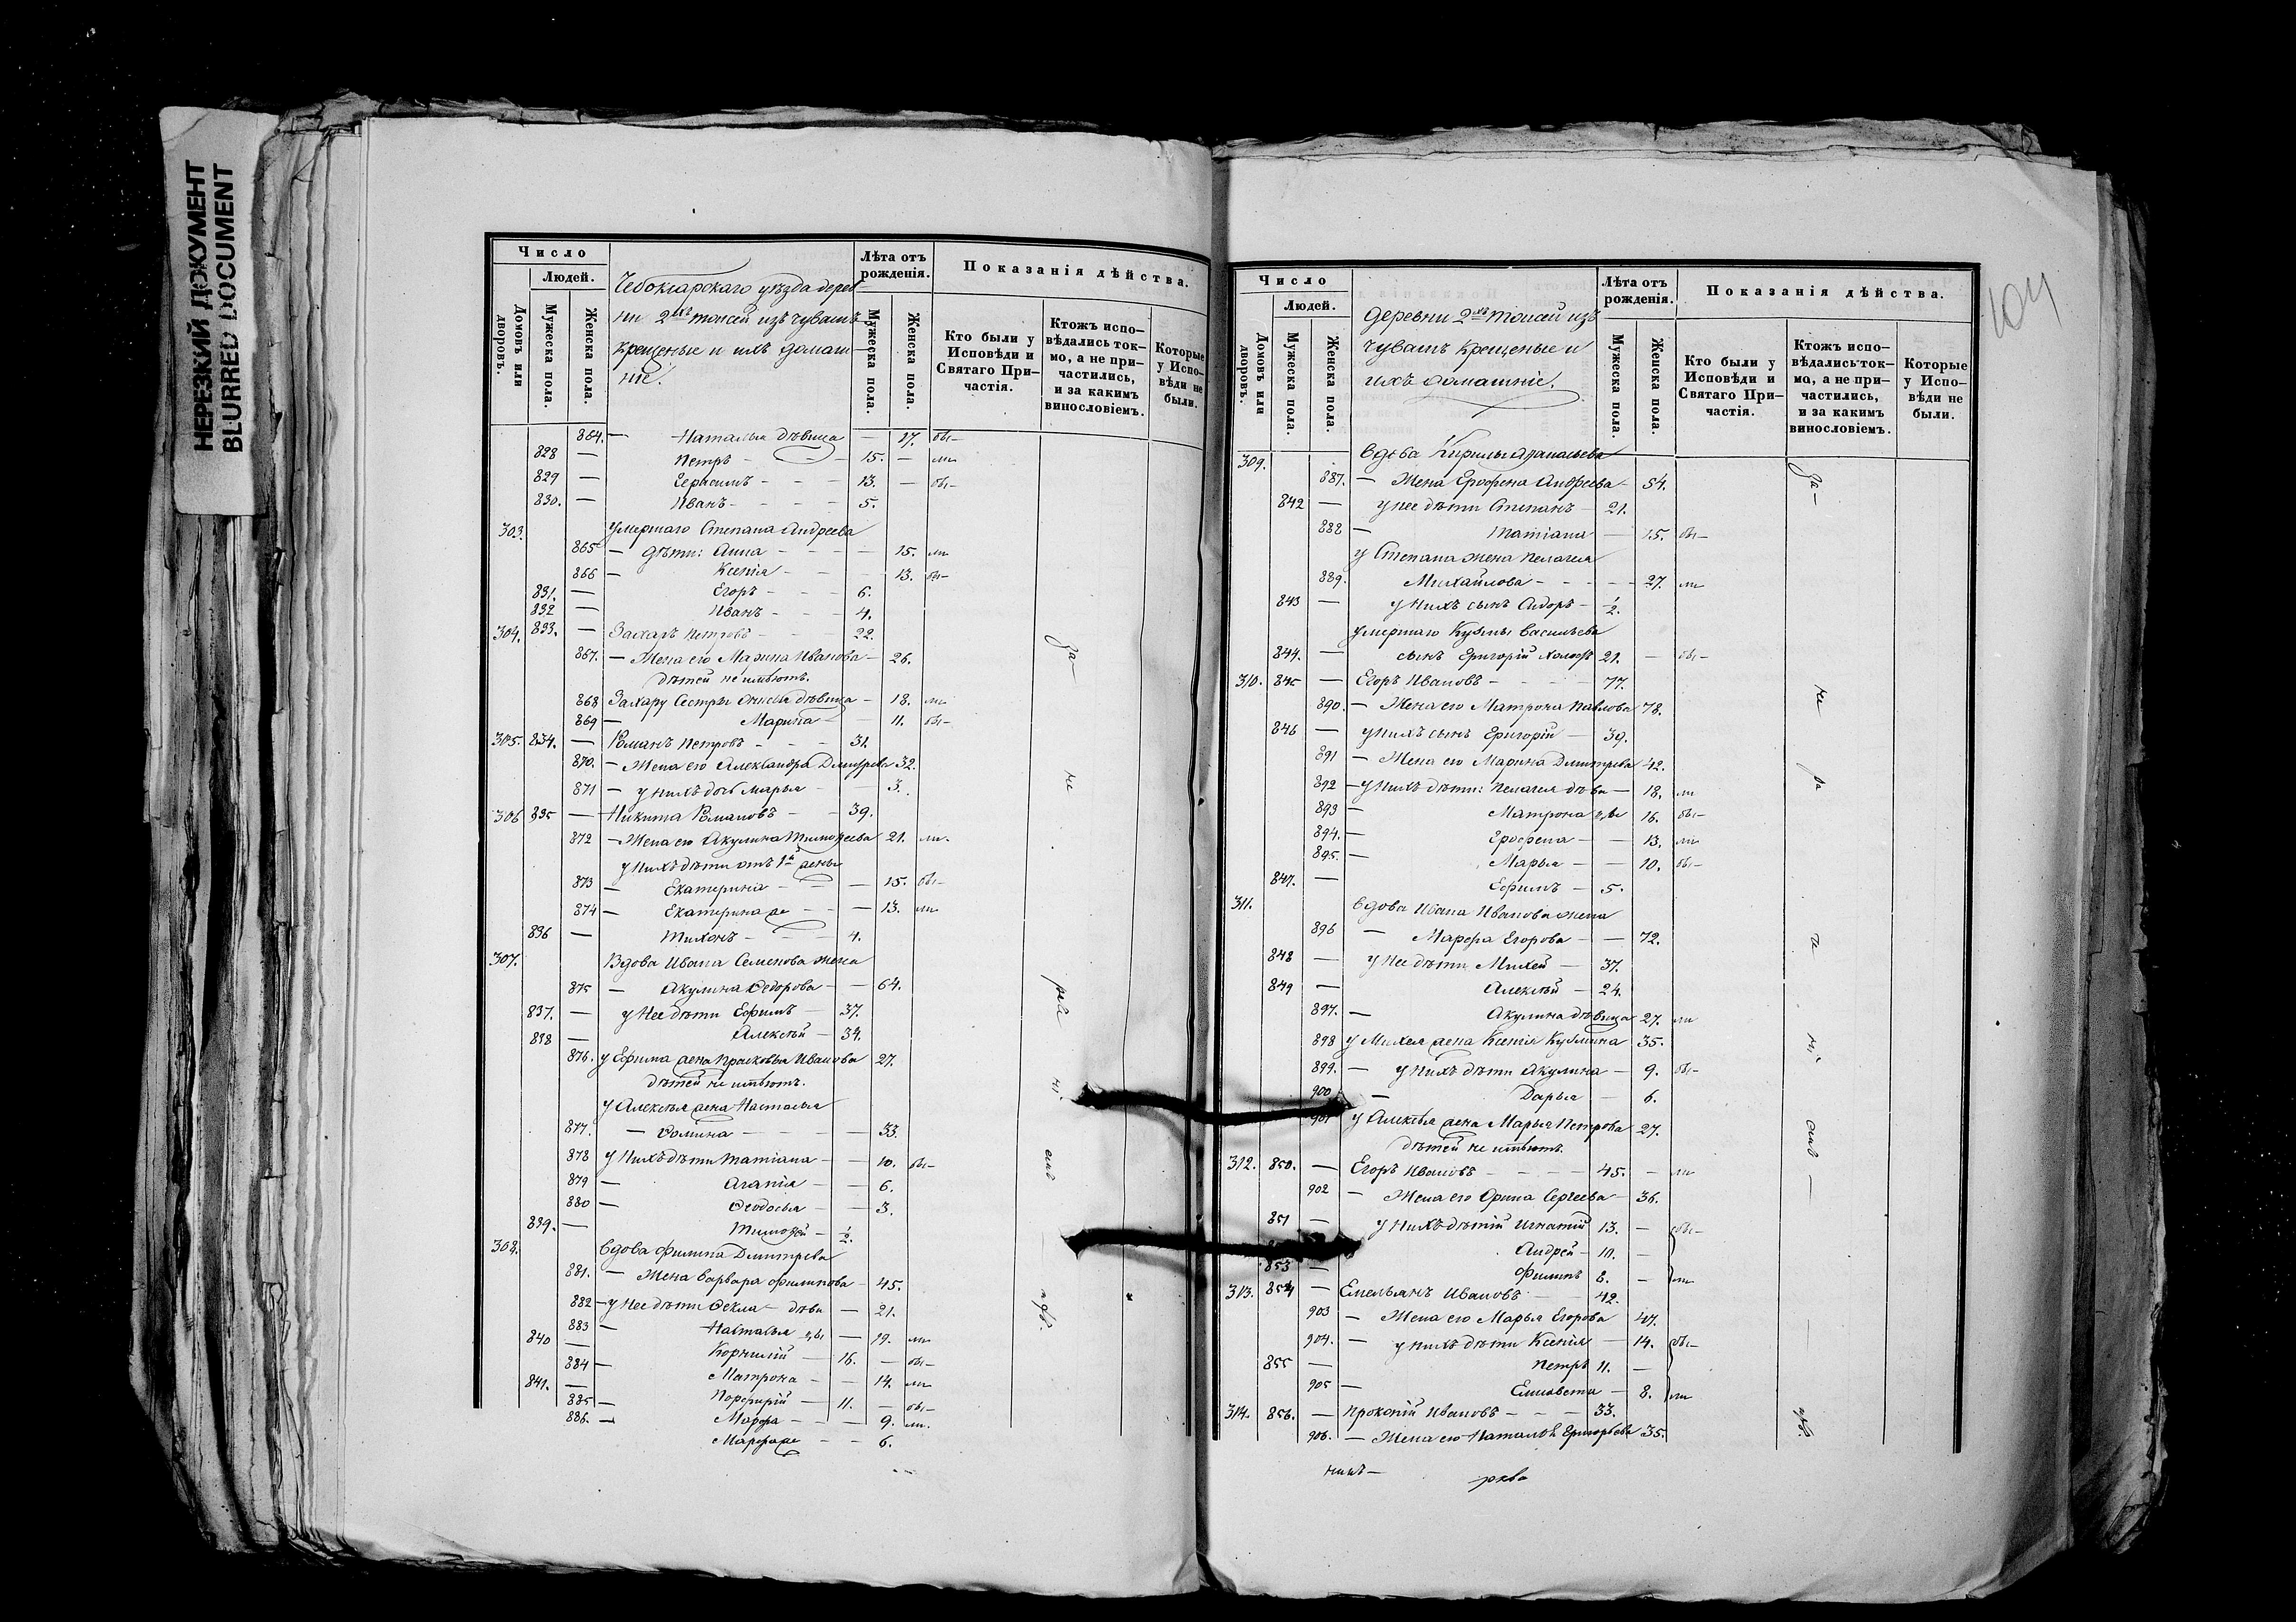 НЕРЕЗКИЙ ДОКУМЕНТ
BLURRED DOCUMENT
Число
Людей.
Домовъ или дворовъ.
Мужеска пола.
Женска пола.
Чебоксарскаго уѣзда дерев
ни 2хъ Тоисей изъ чувашъ
крещеные и ихъ домаш
ніе.
Лѣта отъ рожденія.
Мужеска пола.
Женска пола.
Показанія дѣйства.
Кто были у Исповѣди и Святаго При-частія.
Ктожъ испо-вѣдались ток-мо, а не при-частились, и за какимъ винословіемъ.
Которые у Испо-вѣди не были.
864. — Наталья дѣвица — 17. бы—
828 — Петръ — 15. — ли
829 — Герасимъ — 13. — бы—
830. — Иванъ — 5.
303. умершаго Степана Андреева
865 — дѣти: Анна — 15. ли
866 — Ксенія — 13. бы—
831. — Егоръ — 6.
832 — Иванъ — 4.
304. 833. — Захаръ Петровъ — 22.
867. — Жена его Марина Иванова — 26.
дѣтей не имѣютъ.
868 Захару сестры дѣвица — 18. ли
869 — Марина — 11. бы—
305. 834. — Романъ Петровъ — 31.
870. — Жена его Александра Дмитрева 32.
871 — у нихъ дочь Марья — 3.
306 835 — Никита Романовъ — 39.
872 — Жена его Акулина Тимофеева 21. ли.
у нихъ дѣти отъ 1й жены
873 — Екатерина — 15. бы—
874 — Екатерина же — 13. ли
836 — Тихонъ — 4.
307. Вдова Ивана Семенова жена
875 — Акулина Ѳедорова — 64.
837. — у нее дѣти Ефимъ — 37.
838 — Алексѣй — 34.
876. у Ефима жена Прасковья Иванова 27.
дѣтей не имѣютъ.
у Алексѣя жена Настасья
877. — Ѳомина — 33.
878 у нихъ дѣти Татіана — 10. бы—
879 — Агапія — 6.
880 — Ѳеодосья — 3.
839. — Тимофей — 1/2.
308. Вдова Филипа Дмитрева
881. — Жена Варвара Филипова — 45.
882 — у нее дѣти Ѳекла — дѣви — 21.
883 — Настасья — 19. ли
840 — Корнилій — 16. — бы—
884 — Матрона — 14. ли
841. — Порфирій — 11. — бы—
885 — Марфа — 9. ли.
886. — Марфа же — 6.
Число
Людей.
Домовъ или дворовъ.
Мужеска пола.
Женска пола.
деревни 2хъ Тоисей изъ
чувашъ крещеные и
ихъ домашніе.
Лѣта отъ рожденія.
Мужеска пола.
Женска пола.
Показанія дѣйства.
Кто были у Исповѣди и Святаго При-частія.
Ктожъ испо-вѣдались ток-мо, а не при-частились, и за какимъ винословіемъ.
Которые у Испо-вѣди не были.
104
309. Вдова Кирилы Афанасьева
887. — Жена Ерофена Андреева — 54.
842 — у нее дѣти Степанъ — 21.
888 — Татіана — 15. бы—
у Степана жена Пелагея
889. Михайлова — 27. ли
843 — у нихъ сынъ Сидоръ — 1/2.
умершаго Кузьмы Васильева
844. — сынъ Григорій холостъ 21. — бы—
310. 845 — Егоръ Ивановъ — 77.
890. — Жена его Матрона Павлова 78.
846 — у нихъ сынъ Григорій — 39.
891 — Жена его Марина Дмитрева 42.
892 — у нихъ дѣти: Пелагея дѣви — 18. ли
893 — Матрона 16. бы—
894. — Ерофена — 13. ли
895. — Марья — 10. бы—
847. — Ефимъ — 5.
311. Вдова Ивана Иванова жена
896 — Марфа Егорова — 72.
848 — у нее дѣти Михей — 37.
849 — Алексѣй — 24.
897. — Акулина дѣвица 27. ли
898 у Михея жена Ксенія Кузмина 35.
899. — у нихъ дѣти Акулина — 9. бы—
900 — Дарья — 6.
901 у Алексѣя жена Марья Петрова 27.
дѣтей не имѣютъ.
312. 850. — Егоръ Ивановъ — 45. — ли
902 — Жена его Орина Сергеева — 36.
851 — у нихъ дѣтій Игнатій 13. — бы—
Андрей — 10. —
853 — Филипъ 8. — ли
313. 854 — Емельянъ Ивановъ — 42.
903 — Жена его Марья Егорова 47.
904. — у нихъ дѣти Ксенія — 14. бы—
855 — Петръ 11. —
905 — Елисавета — 8. ли
314. 856. — Прокопій Ивановъ — 33.
906. — Жена его Наталья Григорьева 35.